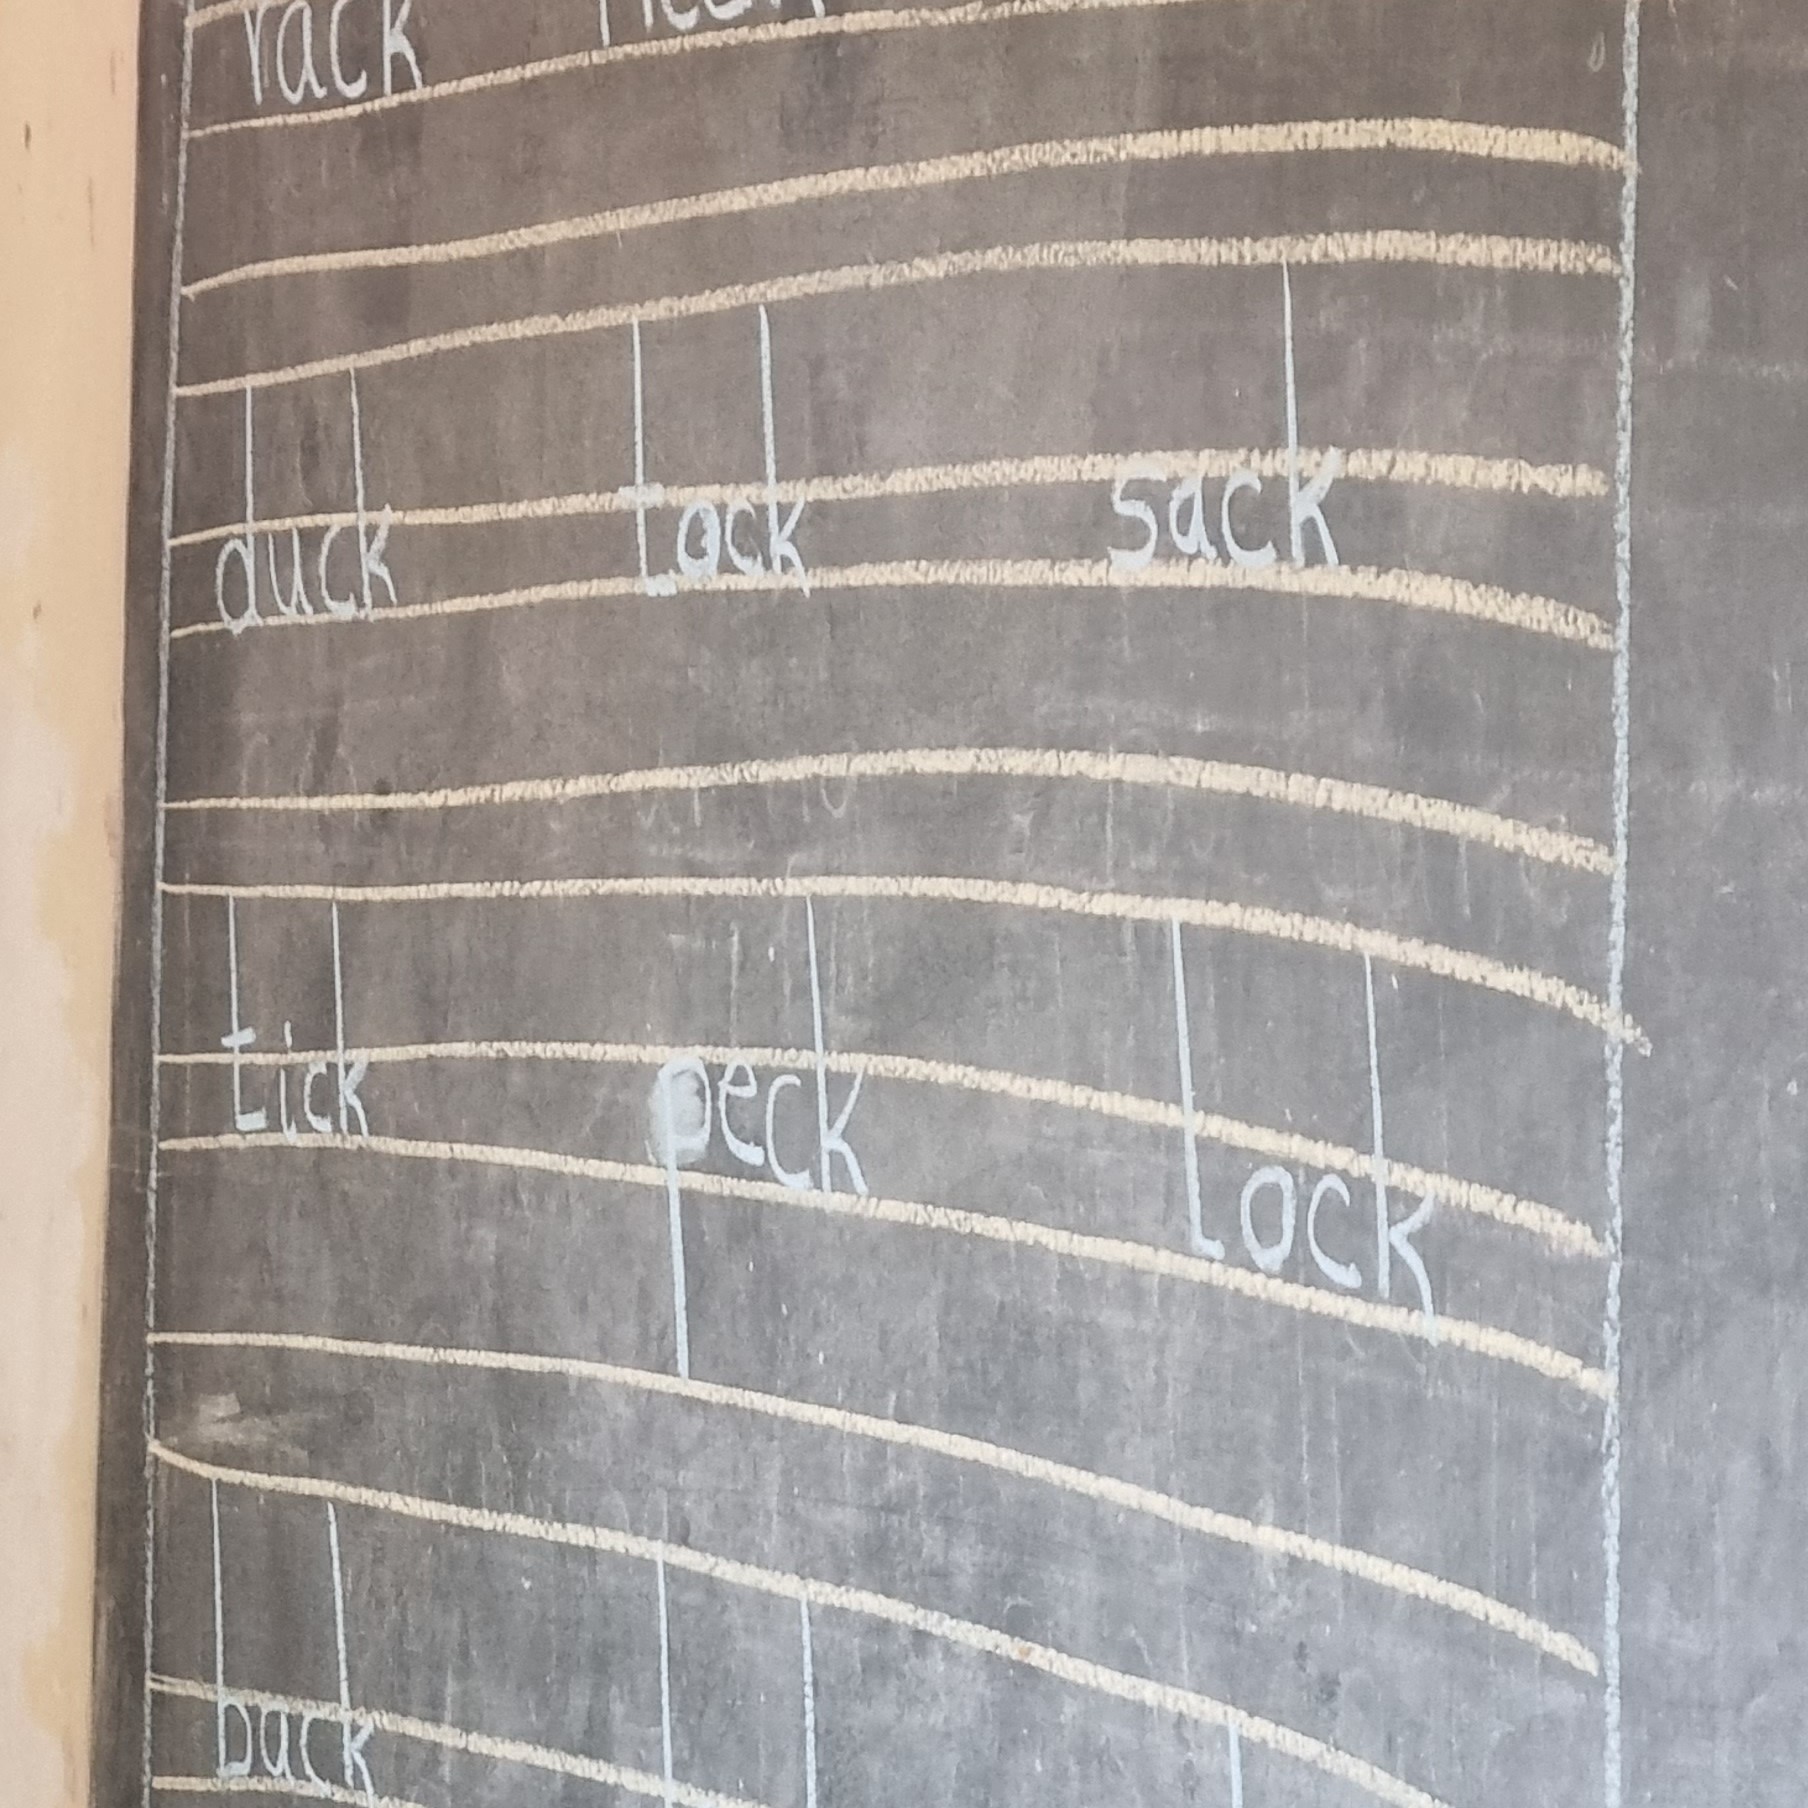 rack
duck tock sack
tick peck lock
back